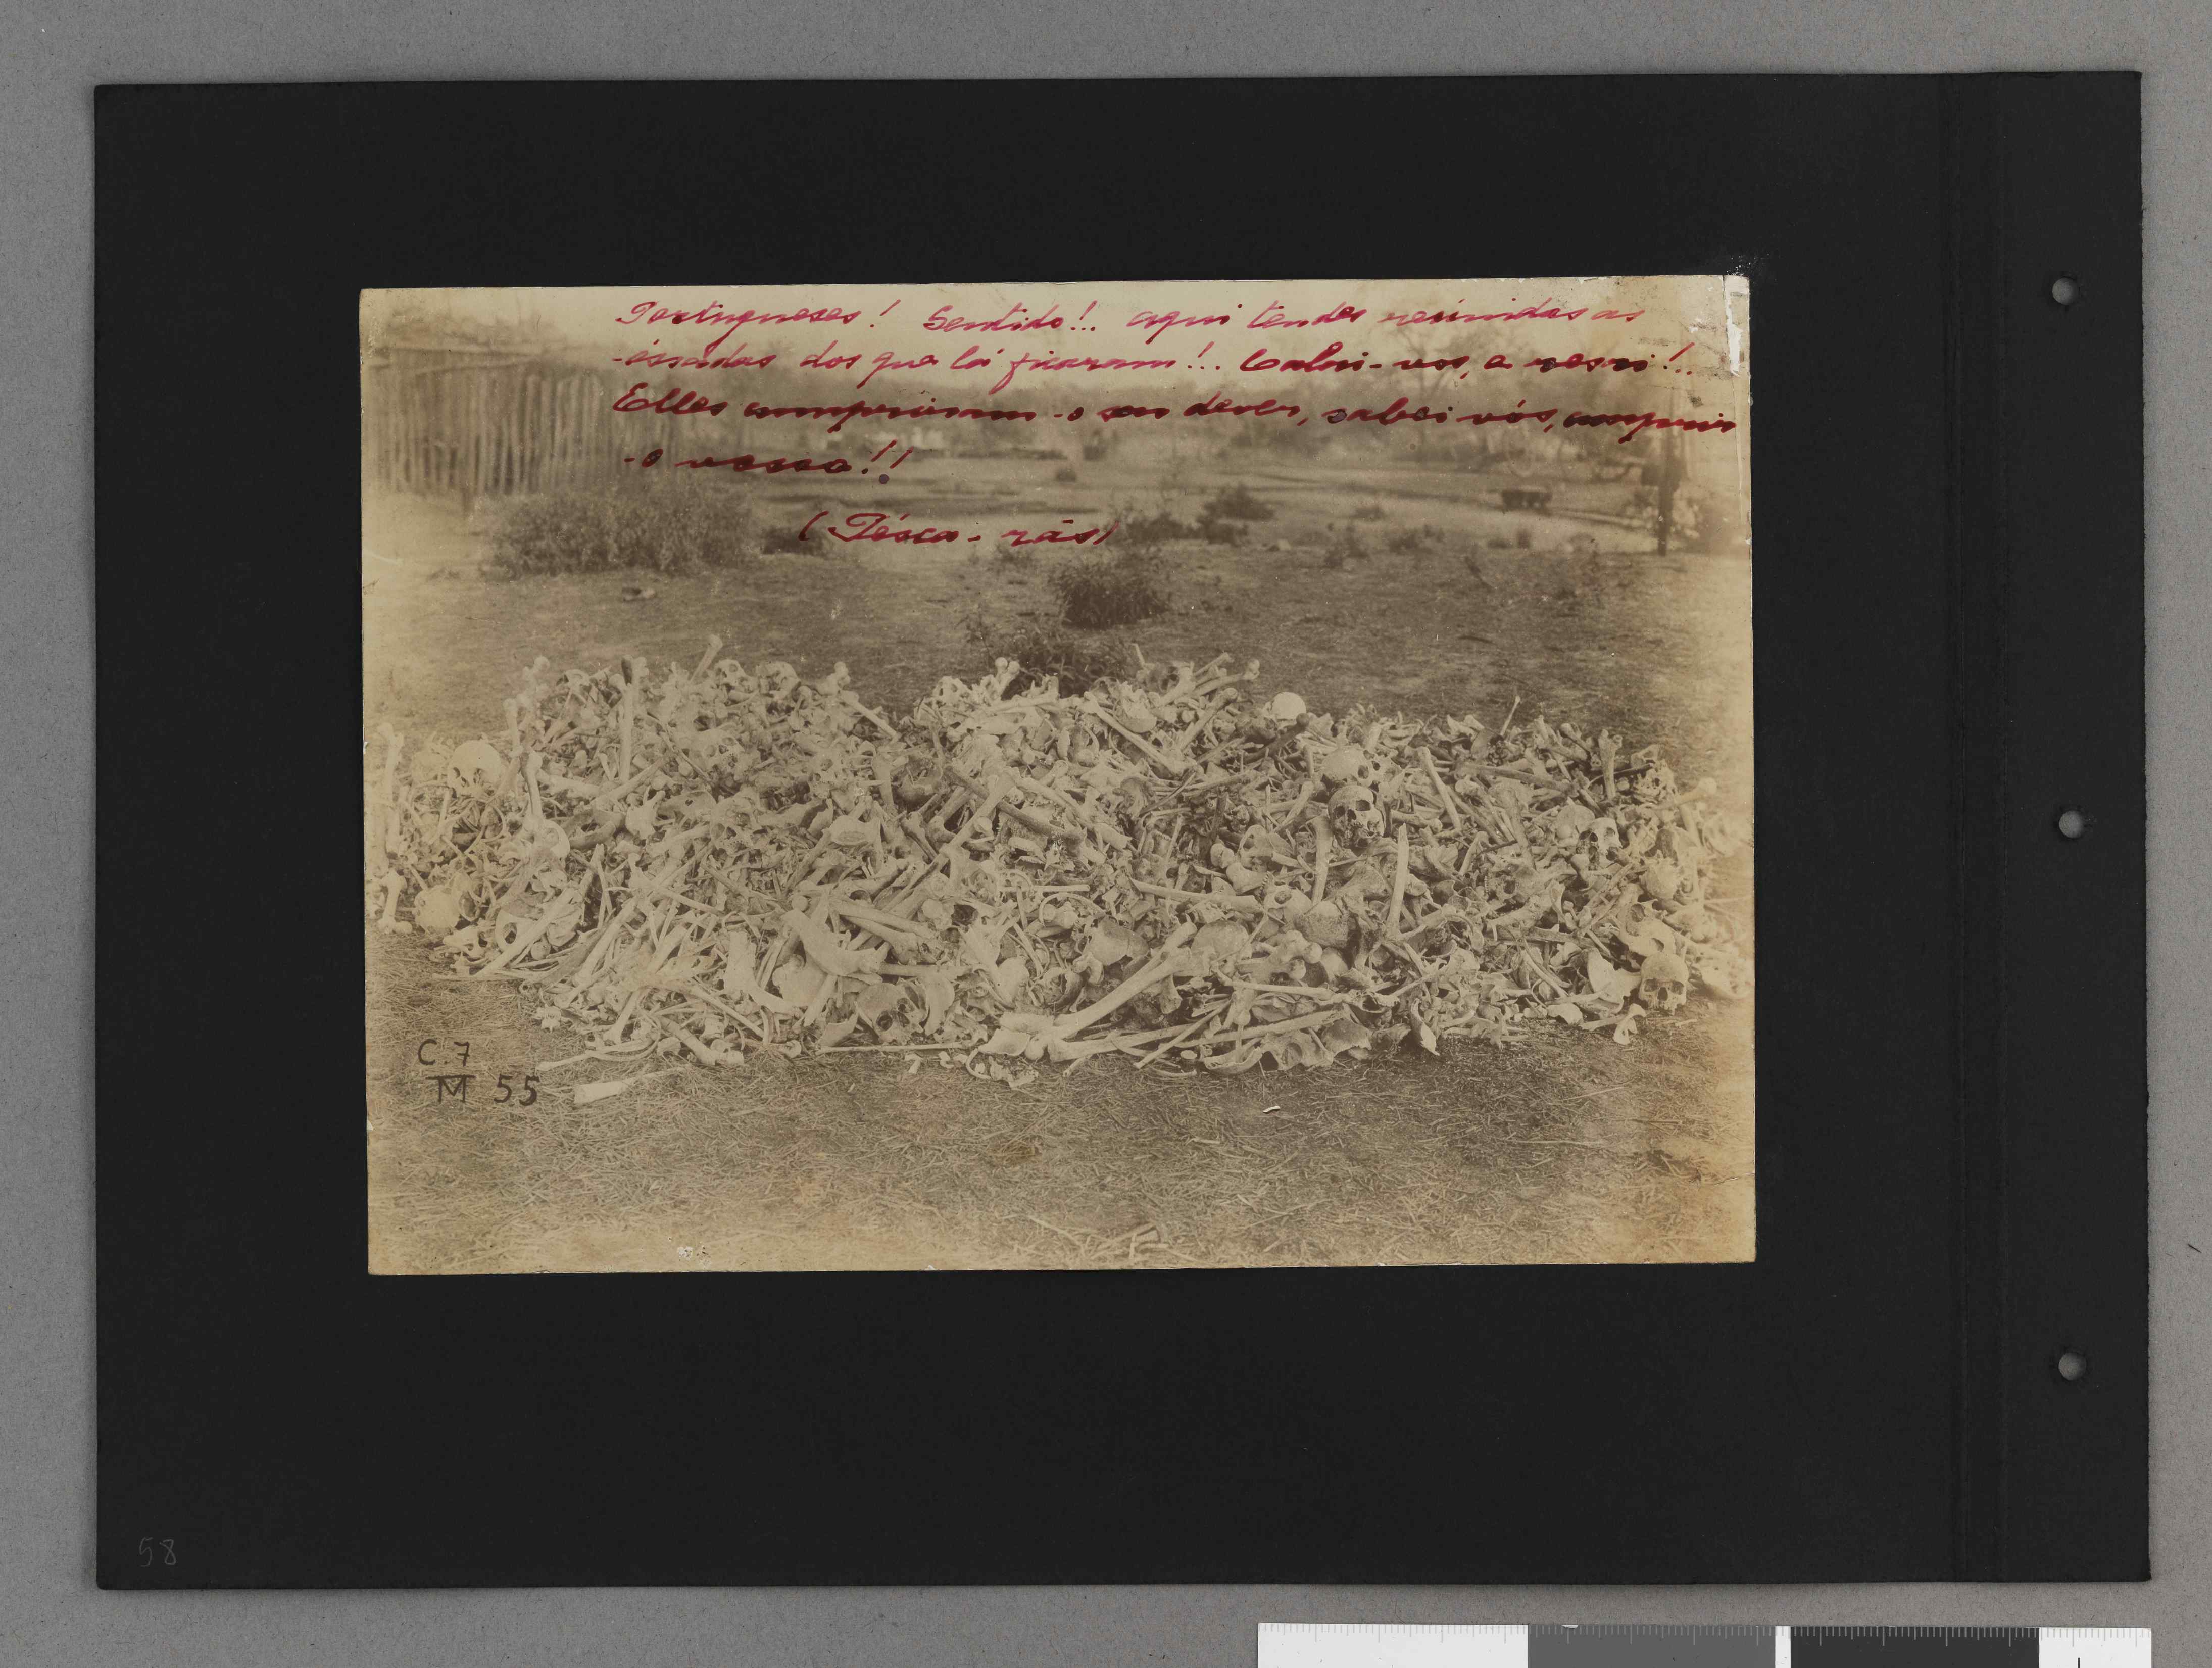 Portugueses! Sentido!.. aqui tendes reúnidas as
-óssádas dos que lá ficaram!.. vos, a
Elles cumpriram-o seu dever, sabei vós, cumprir
-o vosso!!
(Pésca-rãs)
C.7
M 55
58